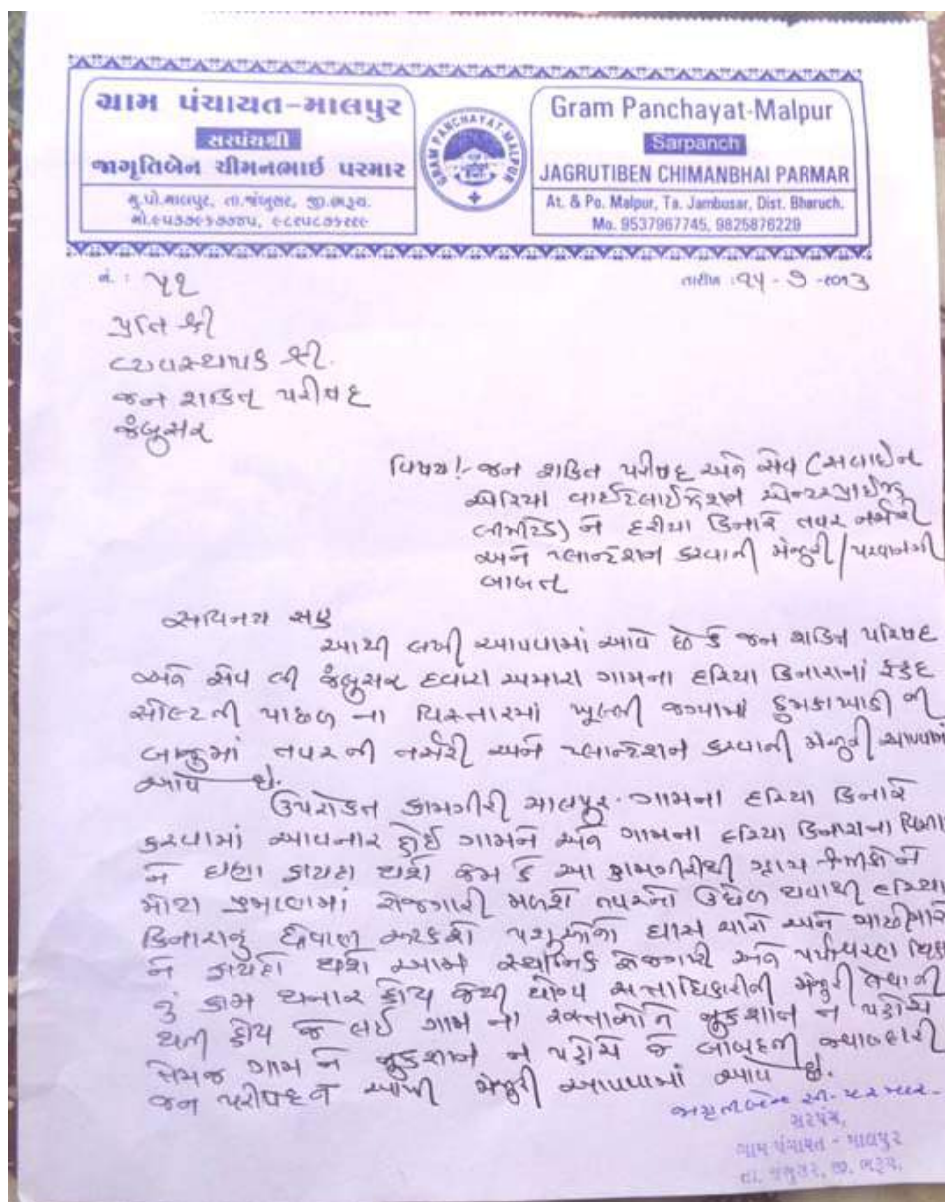 ગ્રામ પંચાયત-માલપુર
સરપંચશ્રી
જાગૃતિબેન ચીમનભાઈ પરમાર
મુ.પો.માલપુર, તા.જંબુસર, જી.ભરૂચ.
મો.૯૫૩૭૯૬૭૭૪૫, ૯૮૨૫૮૭૬૨૨૯
GRAM PANCHAYAT-MALPUR
Gram Panchayat-Malpur
Sarpanch
JAGRUTIBEN CHIMANBHAI PARMAR
At. & Po. Malpur, Ta. Jambusar, Dist. Bharuch.
Mo. 9537967745, 9825876229
નં. : ૫૧
તારીખ : ૧૫-૭-૨૦૧૩
પ્રતિ શ્રી
વ્યવસ્થાપક શ્રી.
જન શક્તિ પરીષદ
જંબુસર
વિષય!- જન શકિત પરીષદ અને સેવ (સલાઈન
એરિયા વાઈટલાઈઝેશન એન્ટરપ્રાઈઝ
લીમીટેડ) ને દરીયા કિનારે તવર નર્સરી
અને પ્લાન્ટેશન કરવાની મંજુરી/પરવાનગી
બાબત
સવિનય સહ
આથી લખી આપવામાં આવે છે કે જન શકિત પરિષદ
અને સેવ લી જંબુસર દ્વારા અમારા ગામના દરિયા કિનારાનાં
સોલ્ટની પાછળ ના વિસ્તારમાં ખૂલ્લી જગ્યામાં ની
બાજુમાં તવર ની નર્સરી અને પ્લાન્ટેશન કરવાની મંજુરી આપવામાં
આવે છે.
ઉપરોકત કામગીરી માલપુર ગામના દરિયા કિનારે
કરવામાં આવનાર હોઈ ગામને અને ગામના દરિયા કિનારાના
ને ઘણા ફાયદા થશે કેમ કે આ કામગીરીથી
મોટા પ્રમાણમાં રોજગારી મળશે તવરનો ઉછેર થવાથી દરિયા
કિનારાનું ધોવાણ અટકશે પશુઓનો ઘાસ ચારો અને માછીમારો
ને ફાયદો થશે આમ સ્થાનિક રોજગારી અને પર્યાવરણ
નું કામ થનાર હોય જેથી યોગ્ય સત્તાધિકારીની મંજુરી લેવાની
થતી હોય જે લઈ ગામ ના રસ્તાઓને નુકશાન ન પહોંચે
તેમજ ગામ ને નુકશાન ન પહોંચે તે બાબતની જવાબદારી
જન પરીષદને આપી મંજુરી આપવામાં આવે છે.
જાગૃતીબેન સી. પરમાર
સરપંચ,
ગ્રામ પંચાયત - માલપુર
તા. જંબુસર, જી. ભરૂચ.